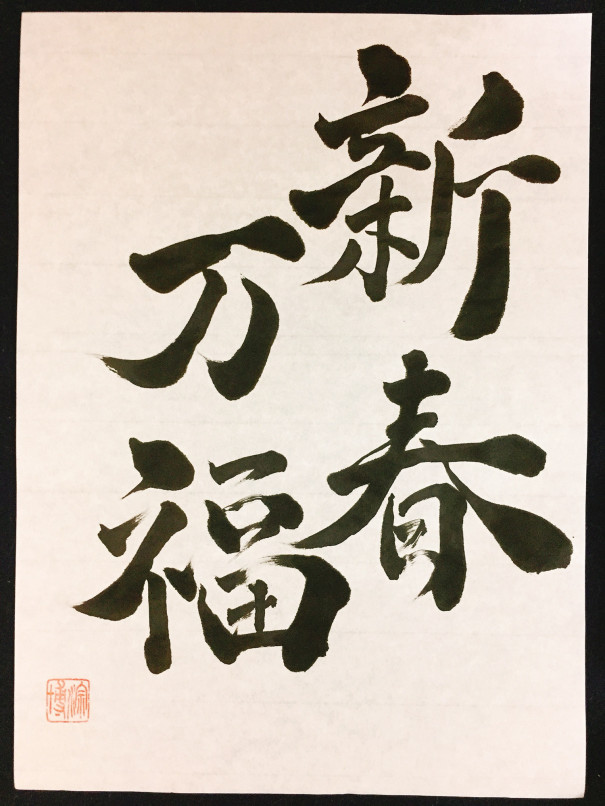 新春
万福